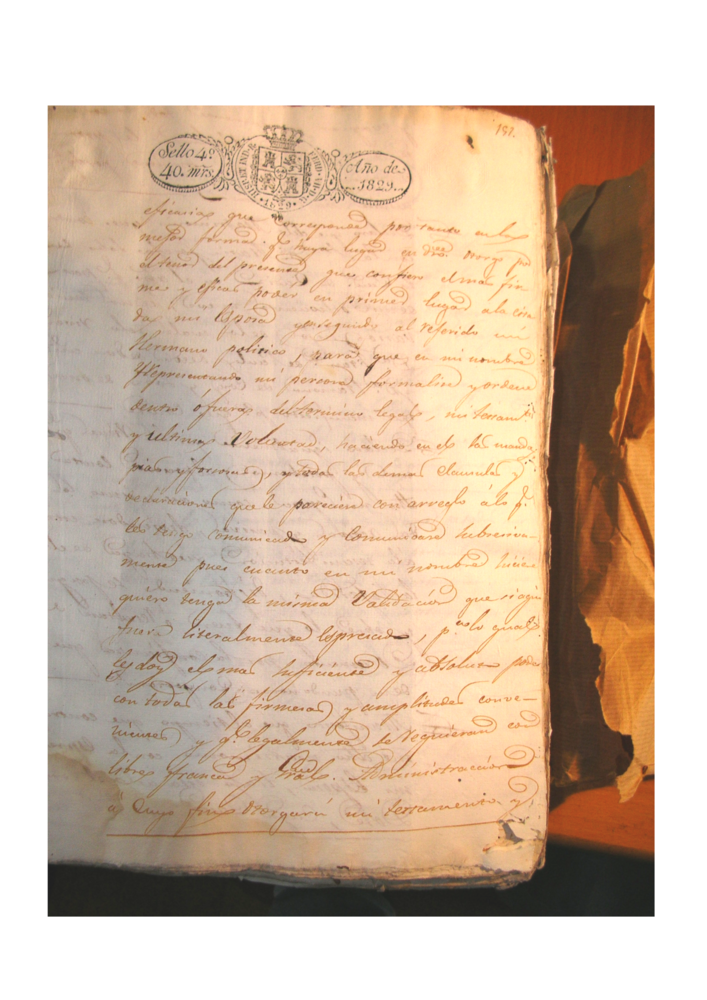 151.
Sello 4º
40. mrs.
HISP. ET IND. R.
FERD. VII. D. G.
1829
Año de
1829.
eficacia que corresponde, por tanto en la
mejor forma q.e haya lugar en dro. otorgo por
el tenor del presente, que confiero el mas fir
me y eficaz poder en primer lugar a la cita
da mi Esposa y en segundo al referido mi
Hermano politico, para que en mi nombre
y representando mi persona formalice y ordene
dentro ó fuera del termino legal, mi testam.to
y ultima Voluntad, haciendo en el las mandas
pias y forzosas, y todas las demas clausulas y
declaraciones que le parecieren con arreglo á lo q.e
les tengo comunicado y comunicaré subcesiva-
mente pues cuanto en mi nombre hiciere
quiero tenga la misma Validacion que si aqui
fuera literalmente Espresado, p.a lo qual
les doy el mas suficiente y absoluto poder
con todas las firmezas y amplitudes conve-
nientes y q.e legalmente se requieran con
libre franca y Gral. Administracion
á cuyo fin otorgará mi testamento y